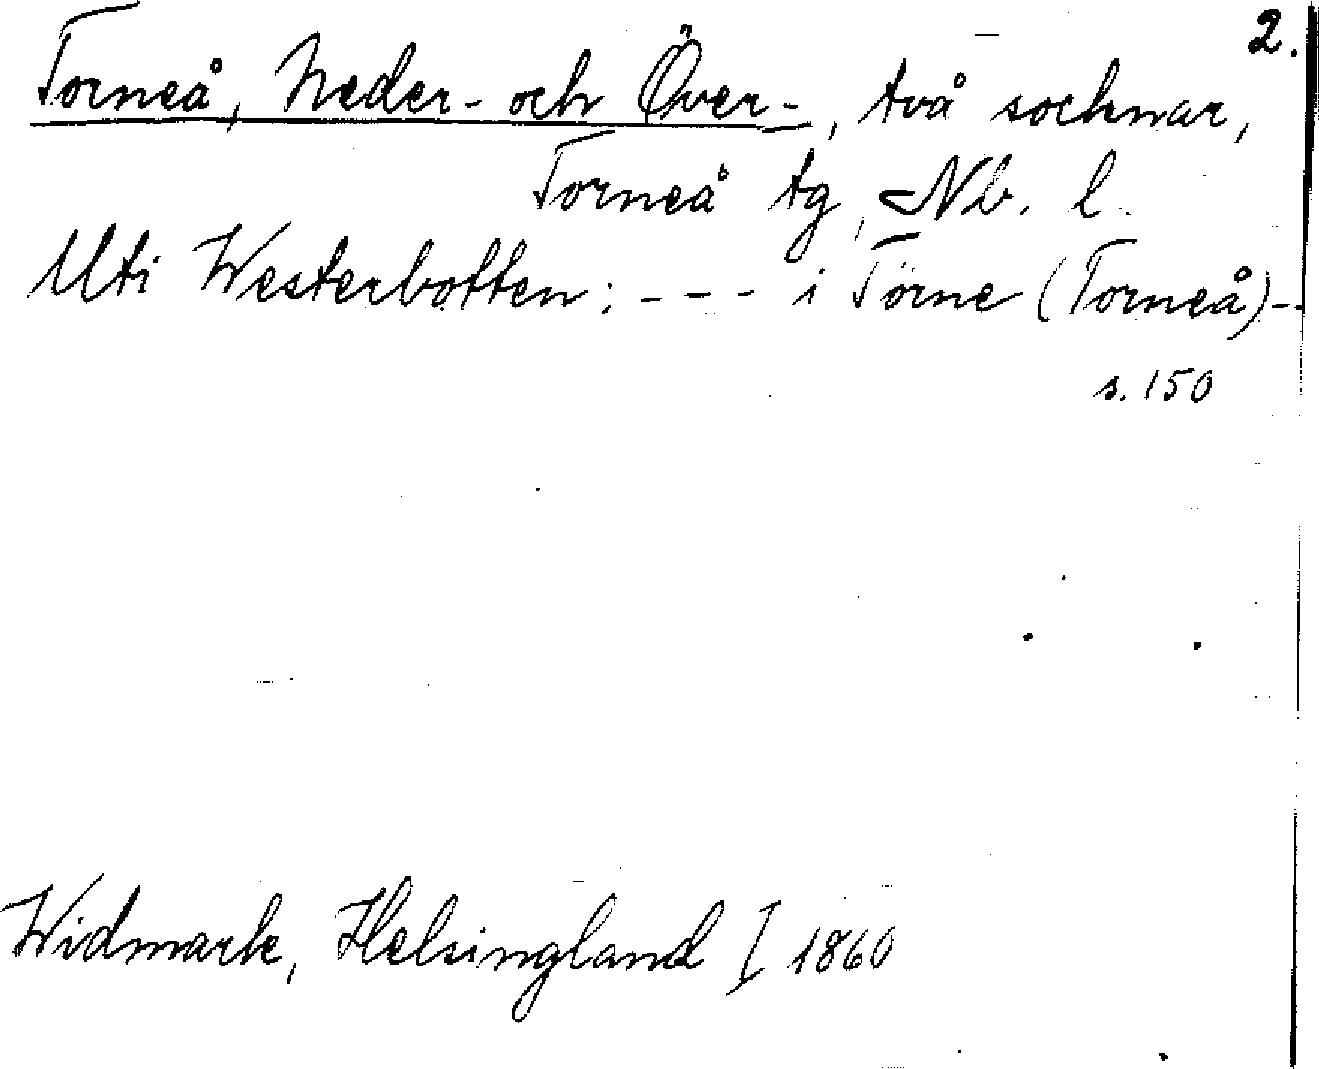 2.
Torneå, Neder- och Över-, två socknar,
Torneå tg, Nb. l.
Uti Westerbotten; --- i Törne (Torneå)--
s. 150
Widmark, Helsingland I 1860